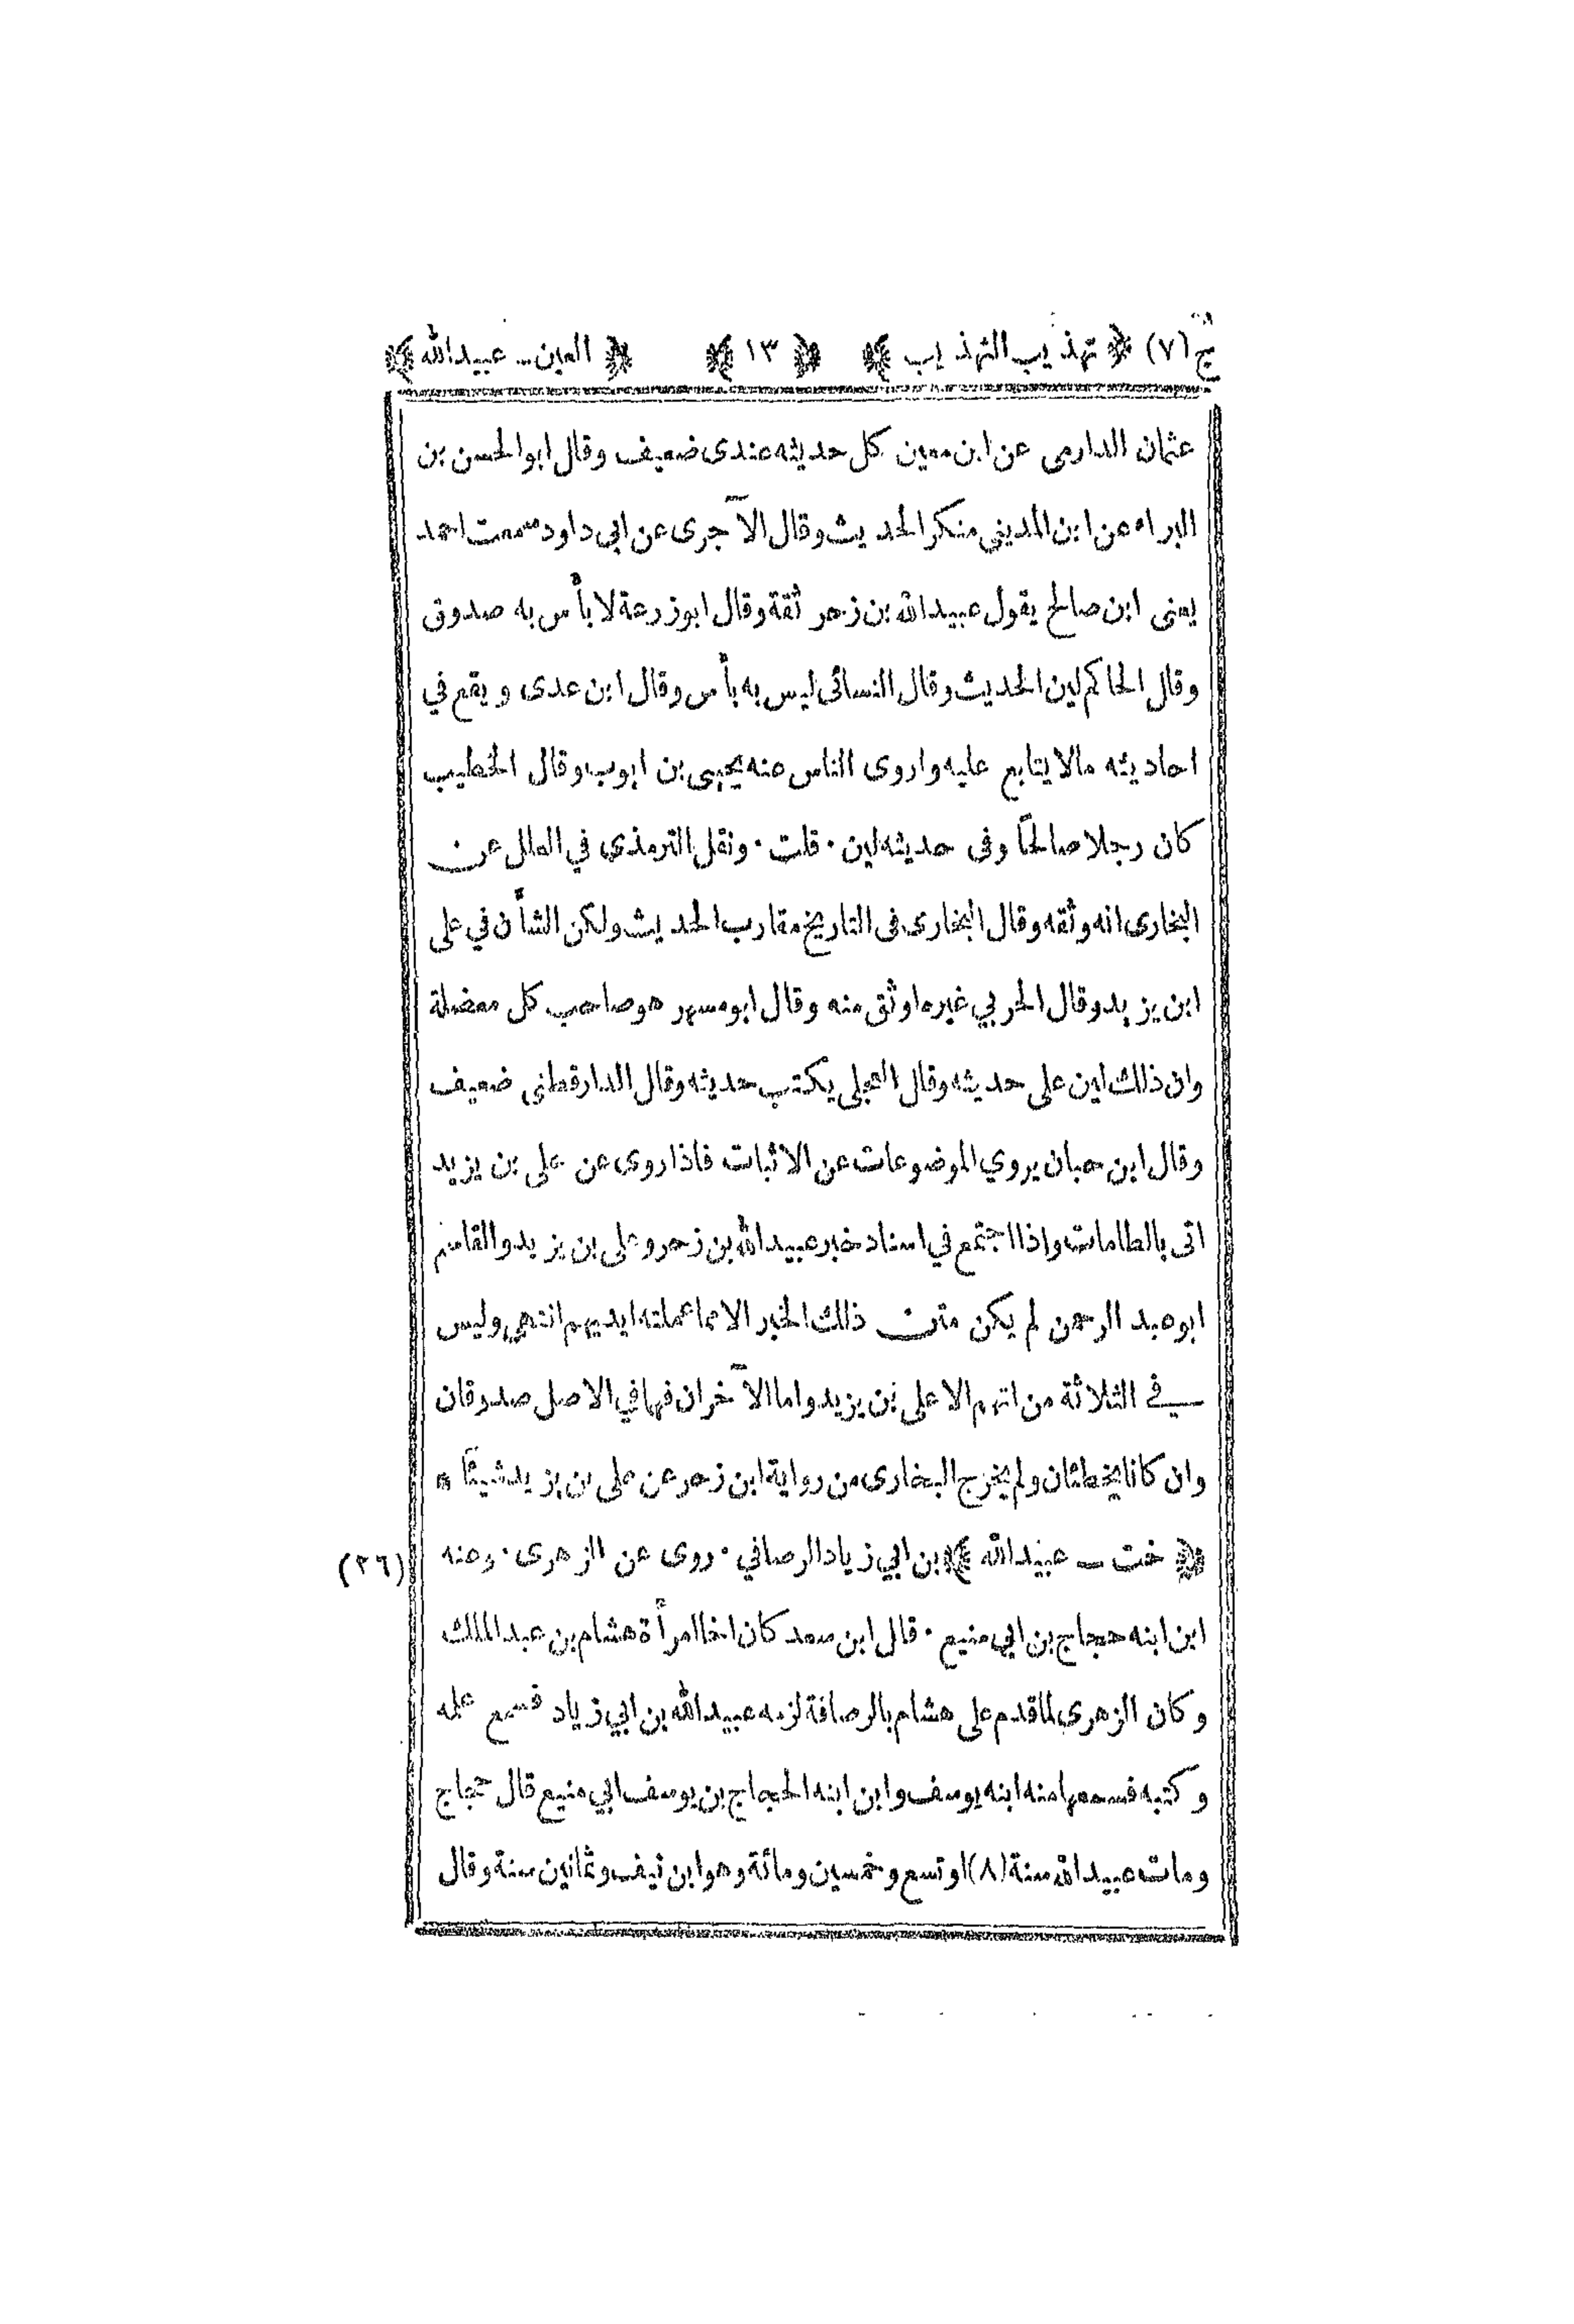 ج (٧) ﴿ تهذيب التهذيب ﴾ ﴿ ١٣ ﴾ ﴿ العين - عبيدالله ﴾
عثمان الدارمى عن ابن معين كل حديثه عندى ضعيف وقال ابوالحسن بن
البراء عن ابن المديني منكر الحديث وقال الآجرى عن ابى داود سمعت احمد
يعنى ابن صالح يقول عبيدالله بن زحر ثقة وقال ابوزرعة لا بأس به صدوق
وقال الحاكم لين الحديث وقال النسائى ليس به بأس وقال ابن عدى و يقع في
احاديثه مالا يتابع عليه واروى الناس عنه يحيى بن ايوب وقال الخطيب
كان رجلا صالحًا وفى حديثه لين · قلت · ونقل الترمذي في العلل عن
البخارى انه وثقه وقال البخارى فى التاريخ مقارب الحديث ولكن الشأن في على
ابن يزيد وقال الحربي غيره اوثق منه وقال ابو مسهر هو صاحب كل معضلة
وان ذلك لبين على حديثه وقال العجلى يكتب حديثه وقال الدارقطنى ضعيف
وقال ابن حبان يروي الموضوعات عن الاثبات فاذا روى عن على بن يزيد
اتى بالطامات واذا اجتمع في اسناد خبر عبيدالله بن زحر وعلى بن يزيد والقاسم
ابو عبد الرحمن لم يكن متن ذلك الخبر الا مما عملته ايديهم انتهى وليس
في الثلاثة من اتهم الا على بن يزيد واما الآخران فهما في الاصل صدوقان
وان كانا يخطئان ولم يخرج البخارى من رواية ابن زحر عن على بن يزيد شيئًا *
﴿ خت - عبيدالله ﴾ بن ابي زياد الرصافي · روى عن الزهرى · وعنه (٢٦)
ابن ابنه حجاج بن ابى منيع · قال ابن سعد كان اخا امرأة هشام بن عبد الملك
وكان الزهرى لما قدم على هشام بالرصافة لزمه عبيدالله بن ابي زياد فسمع علمه
وكتبه فسمعها منه ابنه يوسف وابن ابنه الحجاج بن يوسف ابي منيع قال حجاج
ومات عبيدالله سنة (٨) او تسع وخمسين ومائة وهو ابن نيف وثمانين سنة وقال